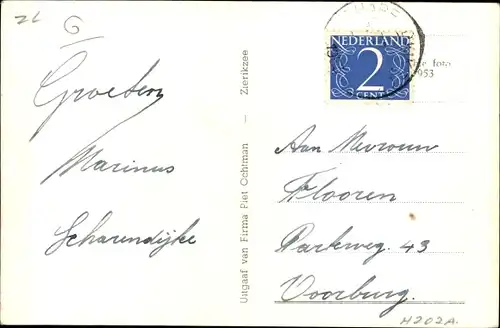 ZL
G
Groeten
Marinus
Scharendijke
Uitgaaf van Firma Piet Ochtman — Zierikzee
NEDERLAND
2
CENT
foto
1953
Aan Mevrouw
Flooren
Parkweg. 43
Voorburg.
H202A.